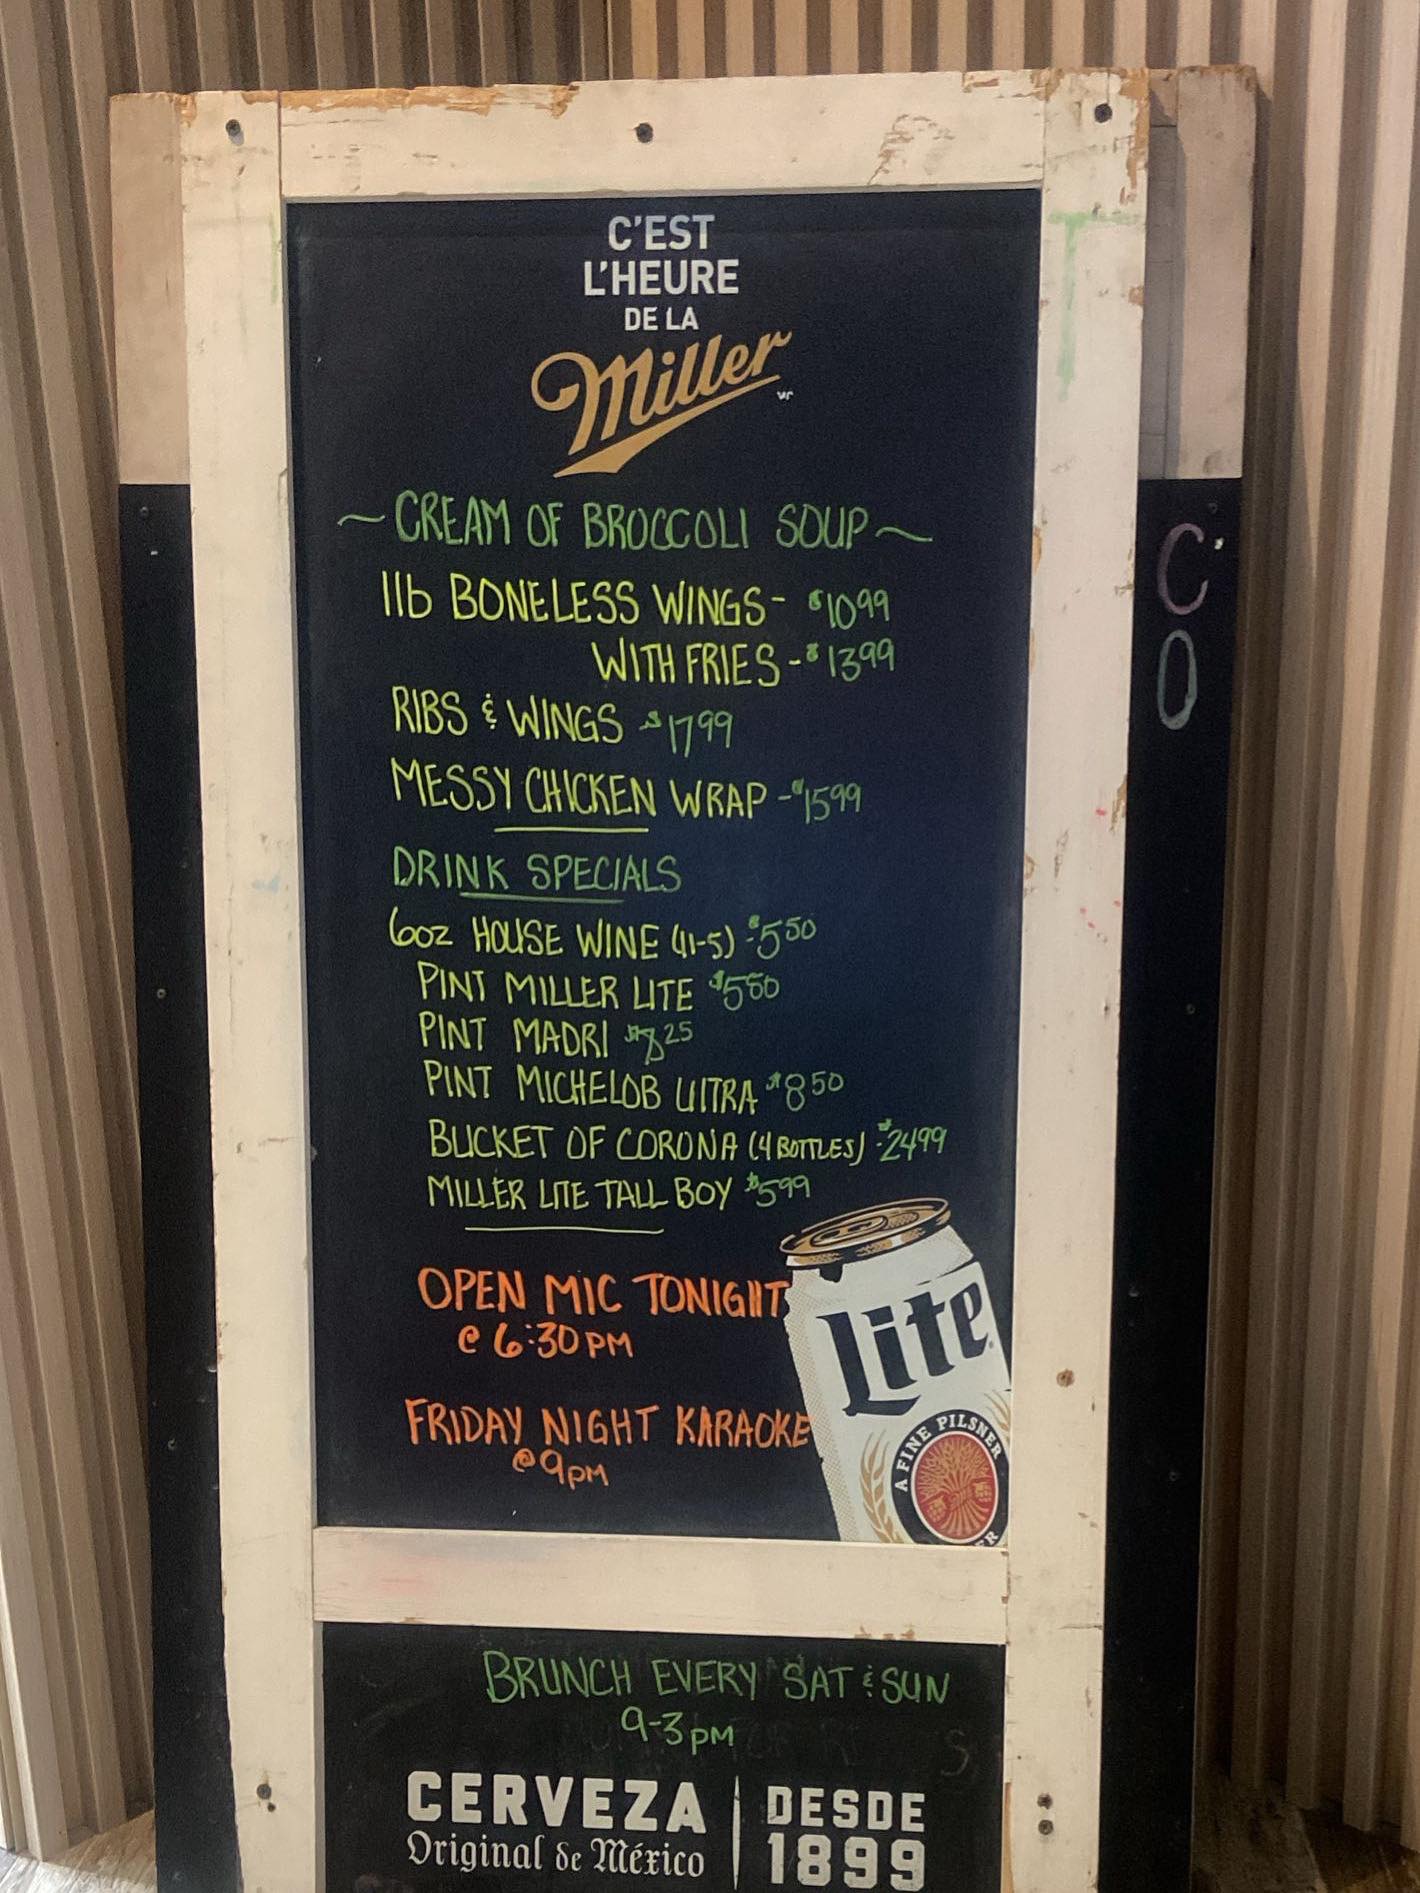 C'EST
L'HEURE
DE LA
Miller
~ CREAM OF BROCCOLI SOUP ~
1lb BONELESS WINGS - $10.99
WITH FRIES - $13.99
RIBS & WINGS - $17.99
MESSY CHICKEN WRAP - $15.99
DRINK SPECIALS
6oz HOUSE WINE (11-5) - $5.50
PINT MILLER LITE $5.50
PINT MADRI $8.25
PINT MICHELOB ULTRA $8.50
BUCKET OF CORONA (4 BOTTLES) - $24.99
MILLER LITE TALL BOY $5.99
OPEN MIC TONIGHT
@ 6:30 PM
FRIDAY NIGHT KARAOKE
@ 9PM
Lite
A FINE PILSNER
BRUNCH EVERY SAT & SUN
9-3 PM
CERVEZA
Original de México
DESDE
1899
C
O